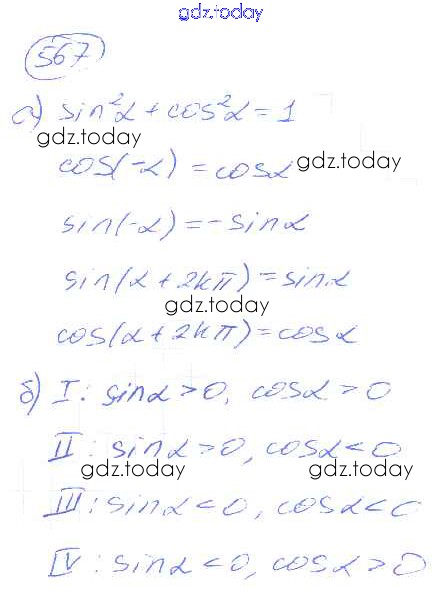 gdz.today
567
а) sin²α + cos²α = 1
gdz.today
cos(-α) = cosα gdz.today
sin(-α) = -sinα
sin(α + 2kπ) = sinα
gdz.today
cos(α + 2kπ) = cosα
б) I: sinα > 0, cosα > 0
II: sinα > 0, cosα < 0
gdz.today gdz.today
III: sinα < 0, cosα < 0
IV: sinα < 0, cosα > 0